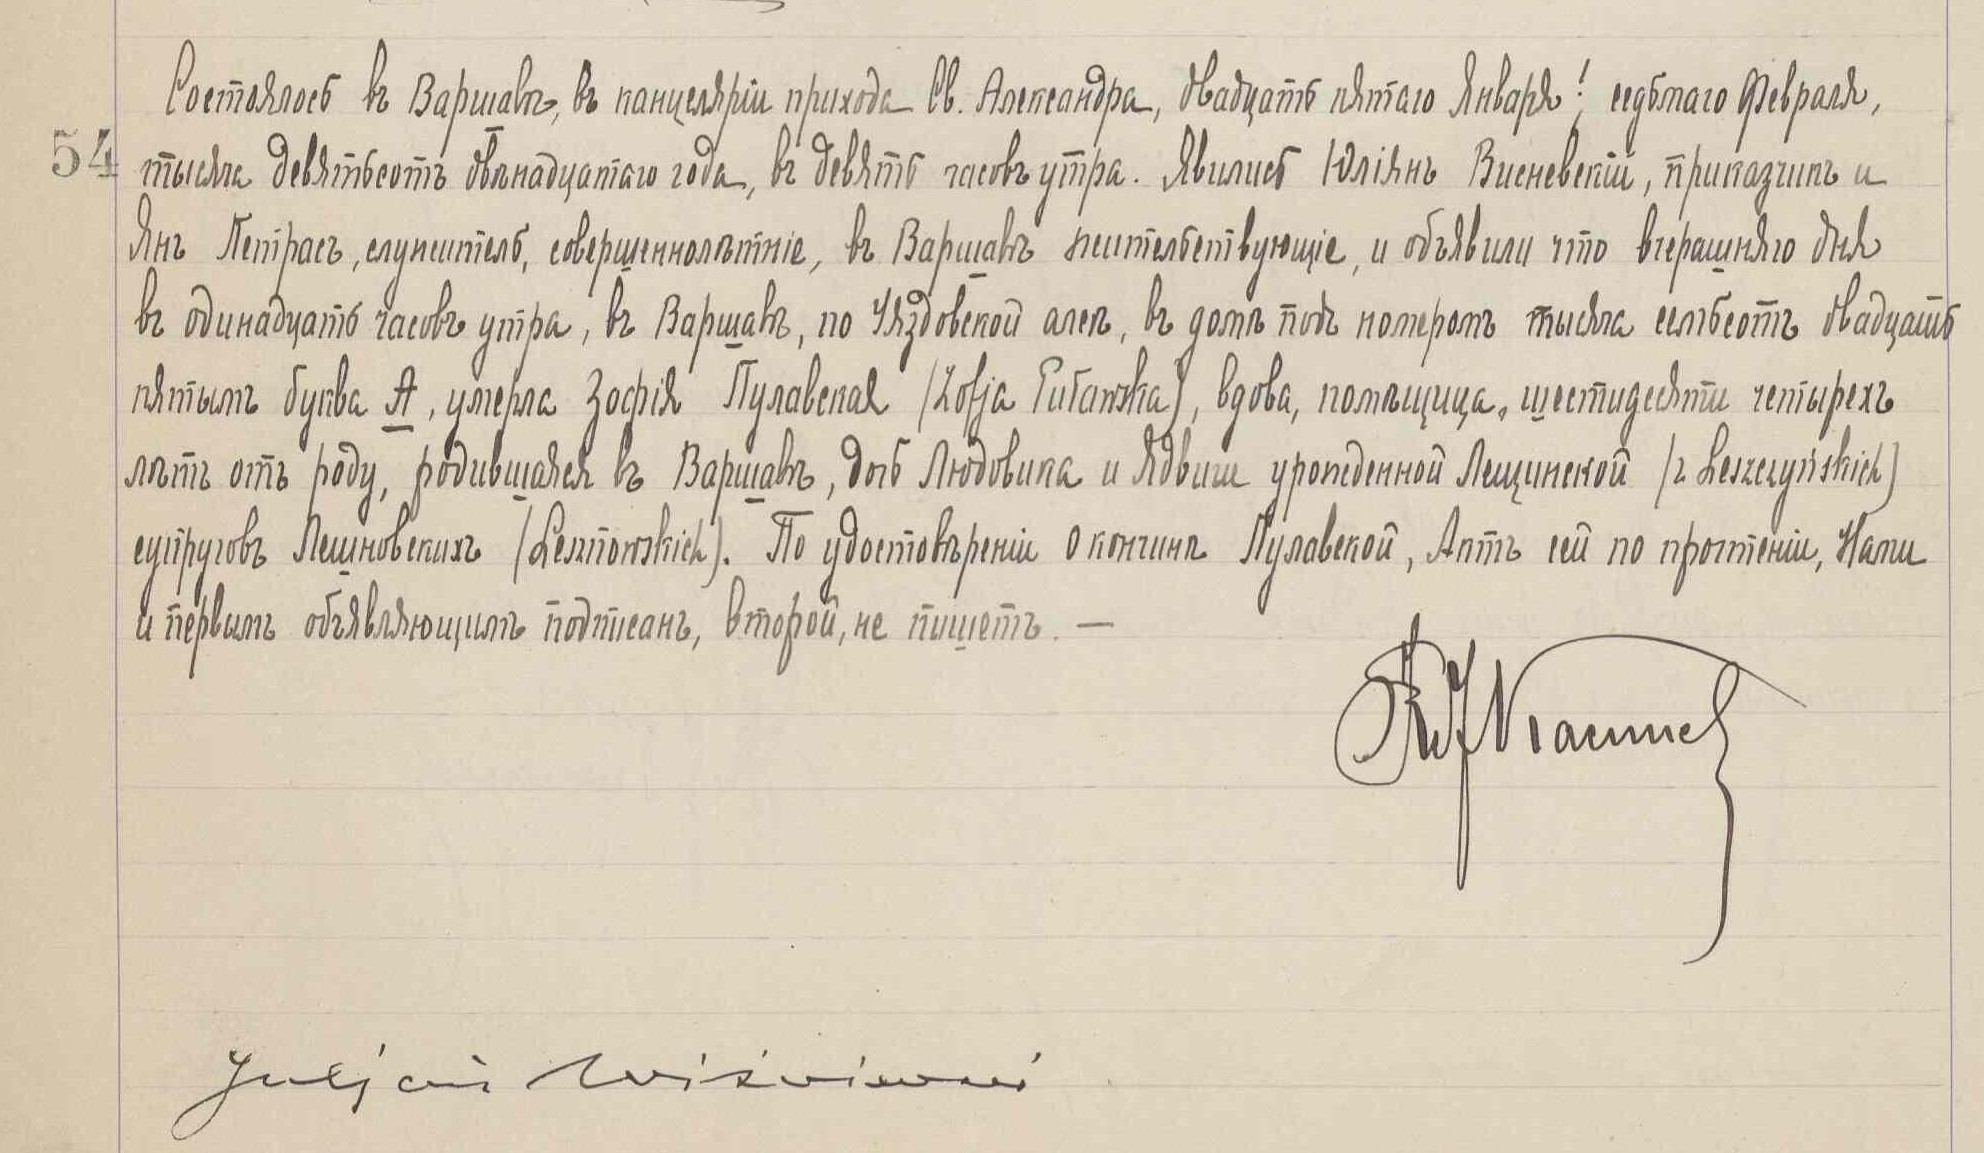 Состоялось въ Варшавѣ, въ канцеляріи прихода Св. Александра, двадцать пятаго Января / седьмаго Февраля,
54 тысяча девятьсотъ двѣнадцатаго года, въ девять часовъ утра. Явились Юліянъ Висневскій, приказчикъ и
Янъ Петрасъ, служитель, совершеннолѣтніе, въ Варшавѣ жительствующіе, и объявили что вчерашняго дня
въ одинадцать часовъ утра, въ Варшавѣ, по Уяздовской алеѣ, въ домѣ подъ номеромъ тысяча семьсотъ двадцать
пятымъ буква А, умерла Зофія Пулавская (Zofja Puławska), вдова, помѣщица, шестидесяти четырехъ
лѣтъ отъ роду, родившаяся въ Варшавѣ, дочь Людовика и Ядвиги урожденной Лещинской (z Leszczyńskich)
супруговъ Лешновскихъ (Lesznowskich). По удостовѣреніи о кончинѣ Пулавской, Актъ сей по прочтеніи, Нами
и первымъ объявляющимъ подписанъ, второй, не пишетъ. —
Juljan Wiśniewski